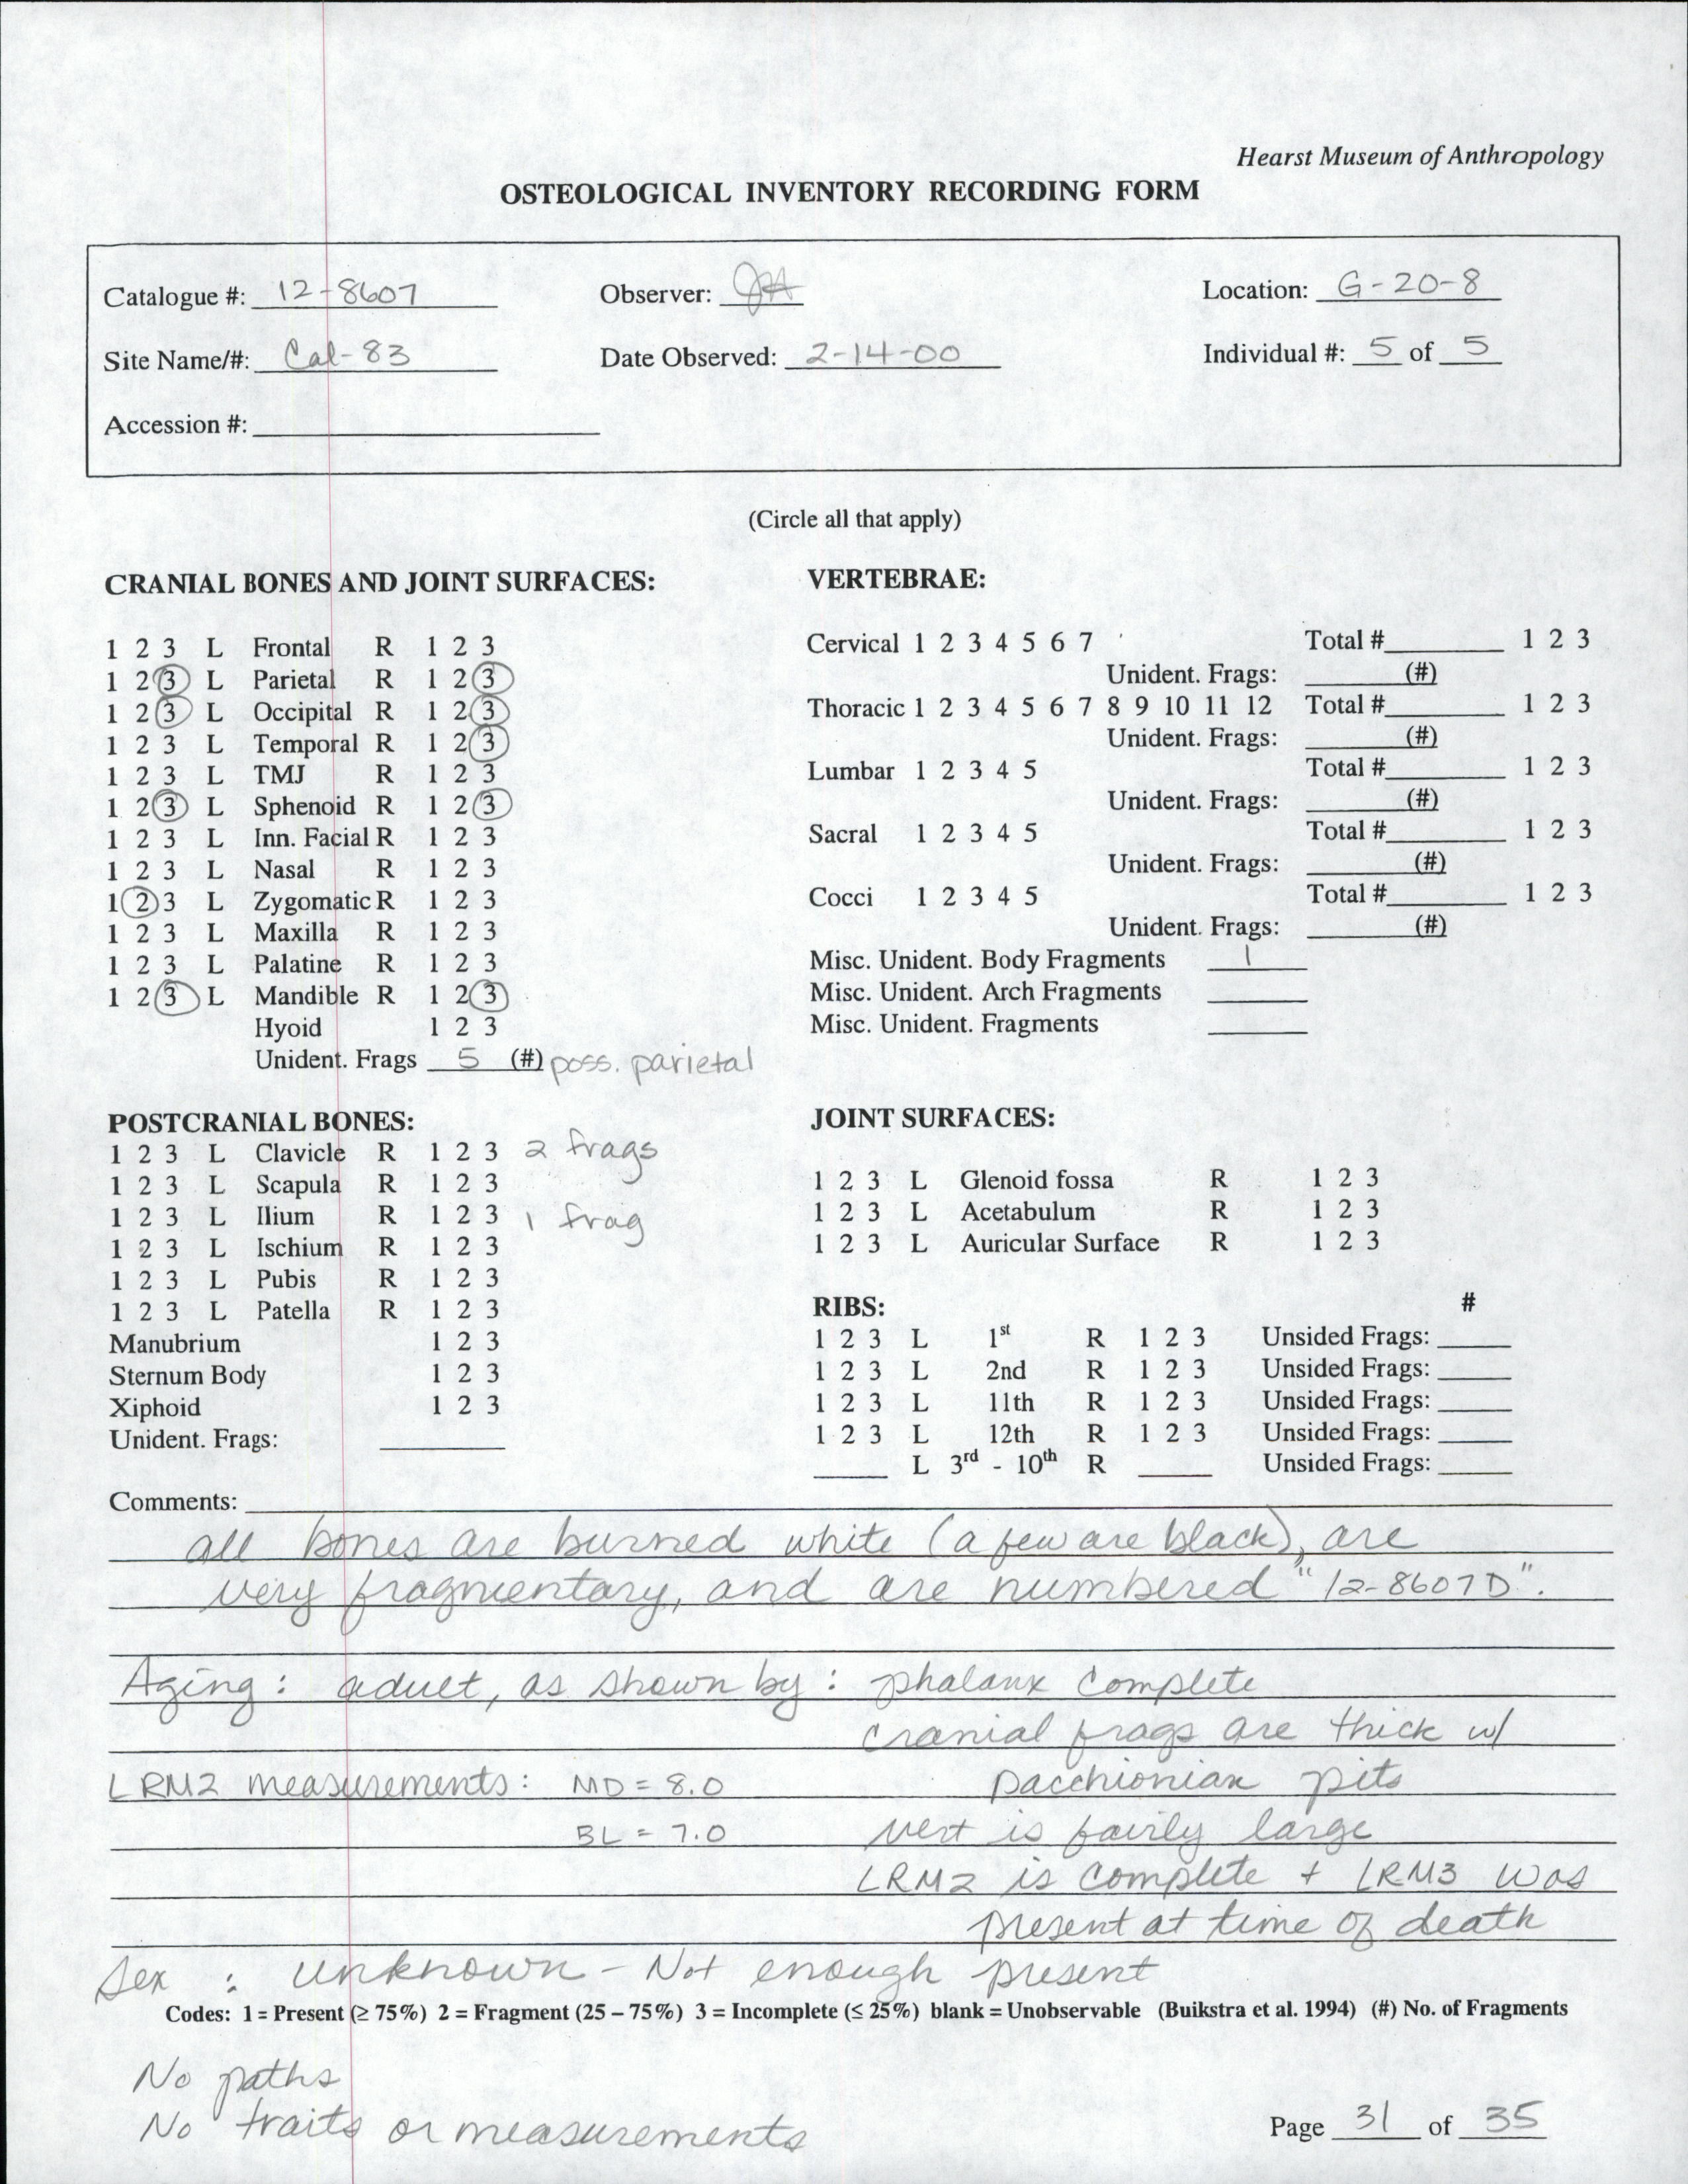 Hearst Museum of Anthropology
OSTEOLOGICAL INVENTORY RECORDING FORM
Catalogue #: 12-8607 Observer: JA Location: G-20-8
Site Name/#: Cal-83 Date Observed: 2-14-00 Individual #: 5 of 5
Accession #:
(Circle all that apply)
CRANIAL BONES AND JOINT SURFACES:
1 2 3 L Frontal R 1 2 3
1 2 3 L Parietal R 1 2 3
1 2 3 L Occipital R 1 2 3
1 2 3 L Temporal R 1 2 3
1 2 3 L TMJ R 1 2 3
1 2 3 L Sphenoid R 1 2 3
1 2 3 L Inn. Facial R 1 2 3
1 2 3 L Nasal R 1 2 3
1 2 3 L Zygomatic R 1 2 3
1 2 3 L Maxilla R 1 2 3
1 2 3 L Palatine R 1 2 3
1 2 3 L Mandible R 1 2 3
Hyoid 1 2 3
Unident. Frags 5 (#) poss. parietal
VERTEBRAE:
Cervical 1 2 3 4 5 6 7 Total # 1 2 3
Unident. Frags: (#)
Thoracic 1 2 3 4 5 6 7 8 9 10 11 12 Total # 1 2 3
Unident. Frags: (#)
Lumbar 1 2 3 4 5 Total # 1 2 3
Unident. Frags: (#)
Sacral 1 2 3 4 5 Total # 1 2 3
Unident. Frags: (#)
Cocci 1 2 3 4 5 Total # 1 2 3
Unident. Frags: (#)
Misc. Unident. Body Fragments 1
Misc. Unident. Arch Fragments
Misc. Unident. Fragments
POSTCRANIAL BONES:
1 2 3 L Clavicle R 1 2 3 2 frags
1 2 3 L Scapula R 1 2 3
1 2 3 L Ilium R 1 2 3 1 frag
1 2 3 L Ischium R 1 2 3
1 2 3 L Pubis R 1 2 3
1 2 3 L Patella R 1 2 3
Manubrium 1 2 3
Sternum Body 1 2 3
Xiphoid 1 2 3
Unident. Frags:
JOINT SURFACES:
1 2 3 L Glenoid fossa R 1 2 3
1 2 3 L Acetabulum R 1 2 3
1 2 3 L Auricular Surface R 1 2 3
RIBS: #
1 2 3 L 1st R 1 2 3 Unsided Frags:
1 2 3 L 2nd R 1 2 3 Unsided Frags:
1 2 3 L 11th R 1 2 3 Unsided Frags:
1 2 3 L 12th R 1 2 3 Unsided Frags:
L 3rd - 10th R Unsided Frags:
Comments:
all bones are burned white (a few are black), are
very fragmentary, and are numbered "12-8607D".
Aging: adult, as shown by: phalanx complete
cranial frags are thick w/
LRM2 measurements: MD = 8.0 pacchionian pits
BL = 7.0 vert is fairly large
LRM2 is complete + LRM3 was
present at time of death
Sex : unknown - Not enough present
Codes: 1 = Present (≥ 75%) 2 = Fragment (25 – 75%) 3 = Incomplete (≤ 25%) blank = Unobservable (Buikstra et al. 1994) (#) No. of Fragments
No paths
No traits or measurements
Page 31 of 35